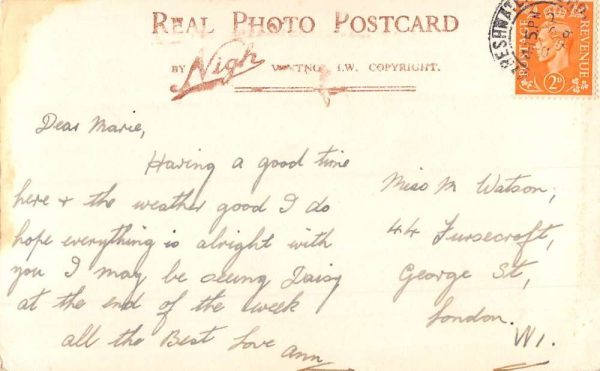 REAL PHOTO POSTCARD
BY Nigh VENTNOR I.W. COPYRIGHT.
POSTAGE REVENUE
2D
Dear Marie,
Having a good time
here & the weather good I do
hope everything is alright with
you I may be seeing Daisy
at the end of the week
all the Best Love Ann
Miss M Watson,
44 Fursecroft,
George St,
London.
W1.